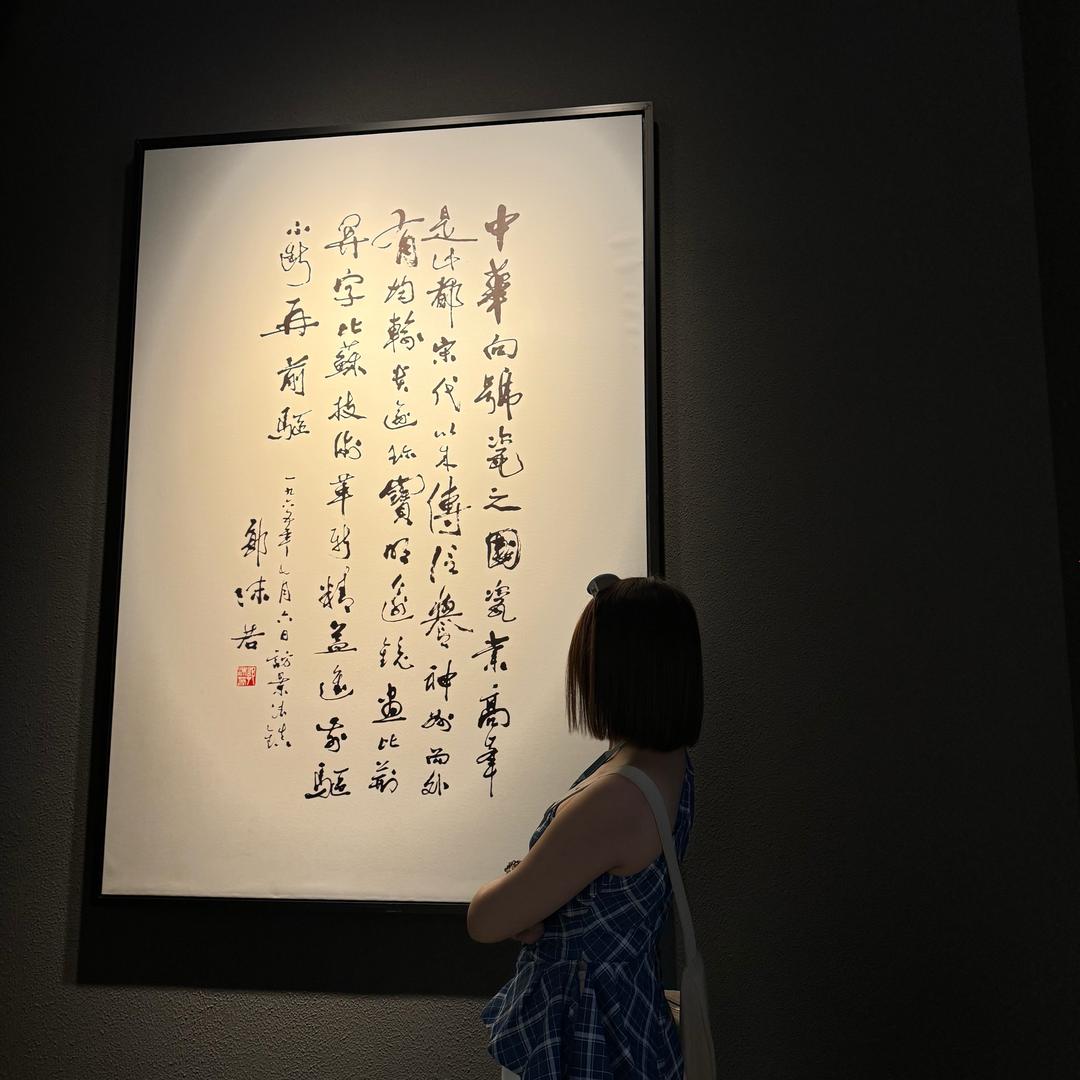 中華向號瓷之國瓷業高峯
是此都宋代以來傳信譽神州而外
有均輸貴逾珎寶明逾鏡畫比荆
関字比蘇技術革新精益進前驅
不断再前驅
一九六五年七月六日訪景德鎮
郭沫若